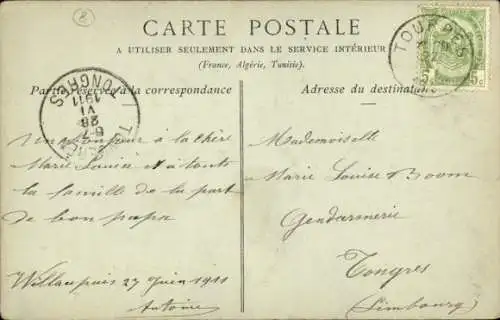 8
CARTE POSTALE
A UTILISER SEULEMENT DANS LE SERVICE INTÉRIEUR
(France, Algérie, Tunisie).
Partie réservée à la correspondance
Adresse du destinataire
TOURPES
5 5c
TONGRES
1911
VI
28
6-7
Un bonjour à la chère
Marie Louise et à tout
la famille de la part
de bon papa
Willaupuis 27 Juin 1911
Antoine
Mademoiselle
Marie Louise Boom
Gendarmerie
Tongres
(Limbourg)